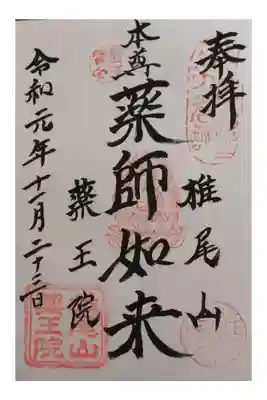 奉拝
椎尾山
本尊
薬師如来
薬王院
令和元年十一月二十三日